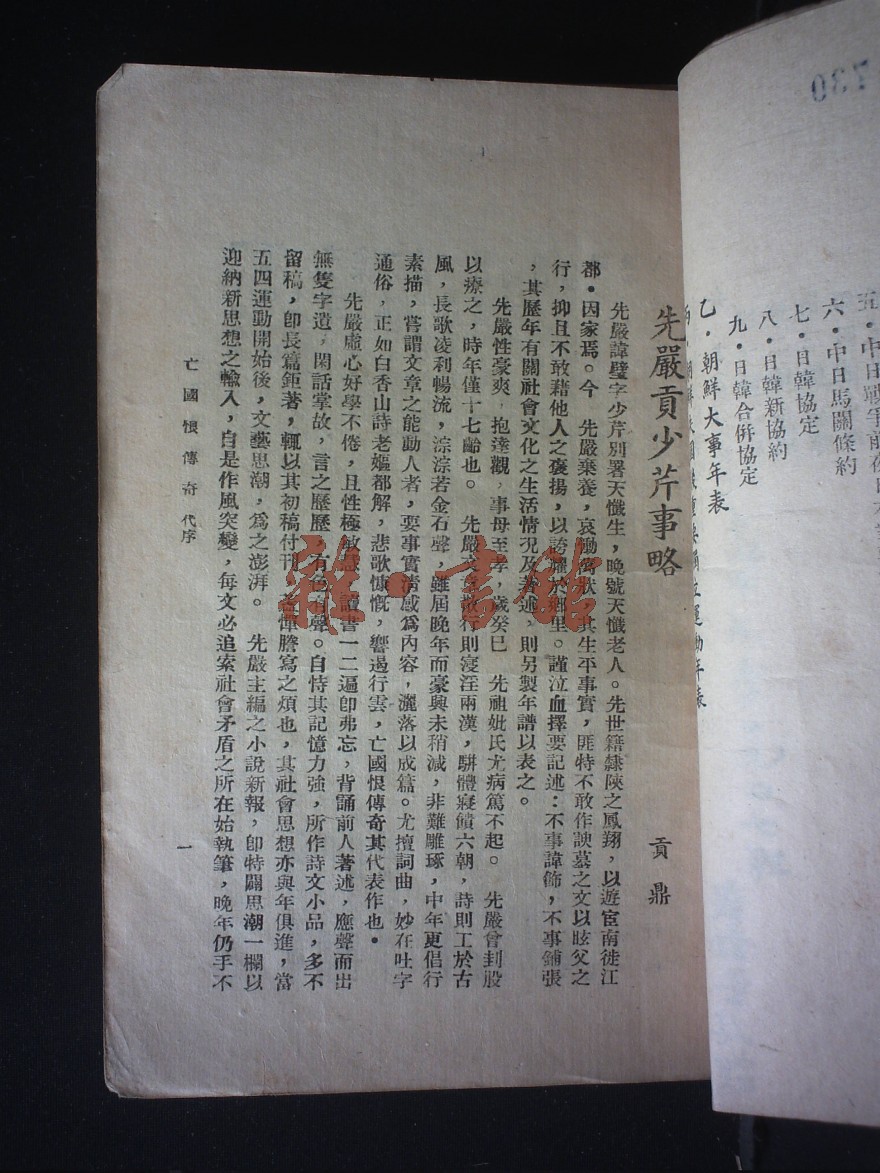 730
五・中日戰爭前夜日本
六・中日馬關條約
七・日韓協定
八・日韓新協約
九・日韓合併協定
乙・朝鮮大事年表
先嚴貢少芹事略
貢鼎
先嚴諱璧字少芹別署天懺生，晚號天懺老人。先世籍隸陝之鳳翔，以遊宦南徙江
都・因家焉。今　先嚴棄養，哀慟萬狀，其生平事實，匪特不敢作諛墓之文以眩父之
行，抑且不敢藉他人之褒揚，以誇耀於鄉里。謹泣血擇要記述：不事諱飾，不事鋪張
，其歷年有關社會文化之生活情況及著述，則另製年譜以表之。
先嚴性豪爽，抱達觀，事母至孝　歲癸巳　先祖妣氏尤病篤不起。　先嚴曾刲股
以療之，時年僅十七齡也。　先嚴文章散行則寖淫兩漢，駢體寢饋六朝，詩則工於古
風，長歌凌利暢流，淙淙若金石聲，雖屆晚年而豪興未稍減，非難雕琢，中年更倡行
素描，嘗謂文章之能動人者，要事實情感爲內容，灑落以成篇。尤擅詞曲，妙在吐字
通俗，正如白香山詩老嫗都解，悲歌慷慨，響遏行雲，亡國恨傳奇其代表作也・
先嚴虛心好學不倦，且性極敏感，讀書一二遍卽弗忘，背誦前人著述，應聲而出
無隻字遺，閑話掌故，言之歷歷，有色有聲。自恃其記憶力強，所作詩文小品，多不
留稿，卽長篇鉅著，輒以其初稿付刊　憚謄寫之煩也，其社會思想亦與年俱進，當
五四運動開始後，文藝思潮，爲之澎湃。　先嚴主編之小說新報，卽特闢思潮一欄以
迎納新思想之輸入，自是作風突變，每文必追索社會矛盾之所在始執筆，晚年仍手不
亡國恨傳奇 代序
一
雜・書館